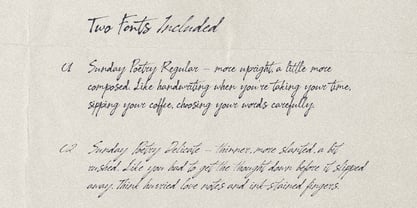 Two Fonts Included
01 Sunday Poetry Regular – more upright, a little more
composed. Like handwriting when you're taking your time,
sipping your coffee, choosing your words carefully.
02 Sunday Poetry Delicate – thinner, more slanted, a bit
rushed. Like you had to get the thought down before it slipped
away. think hurried love notes and ink-stained fingers.